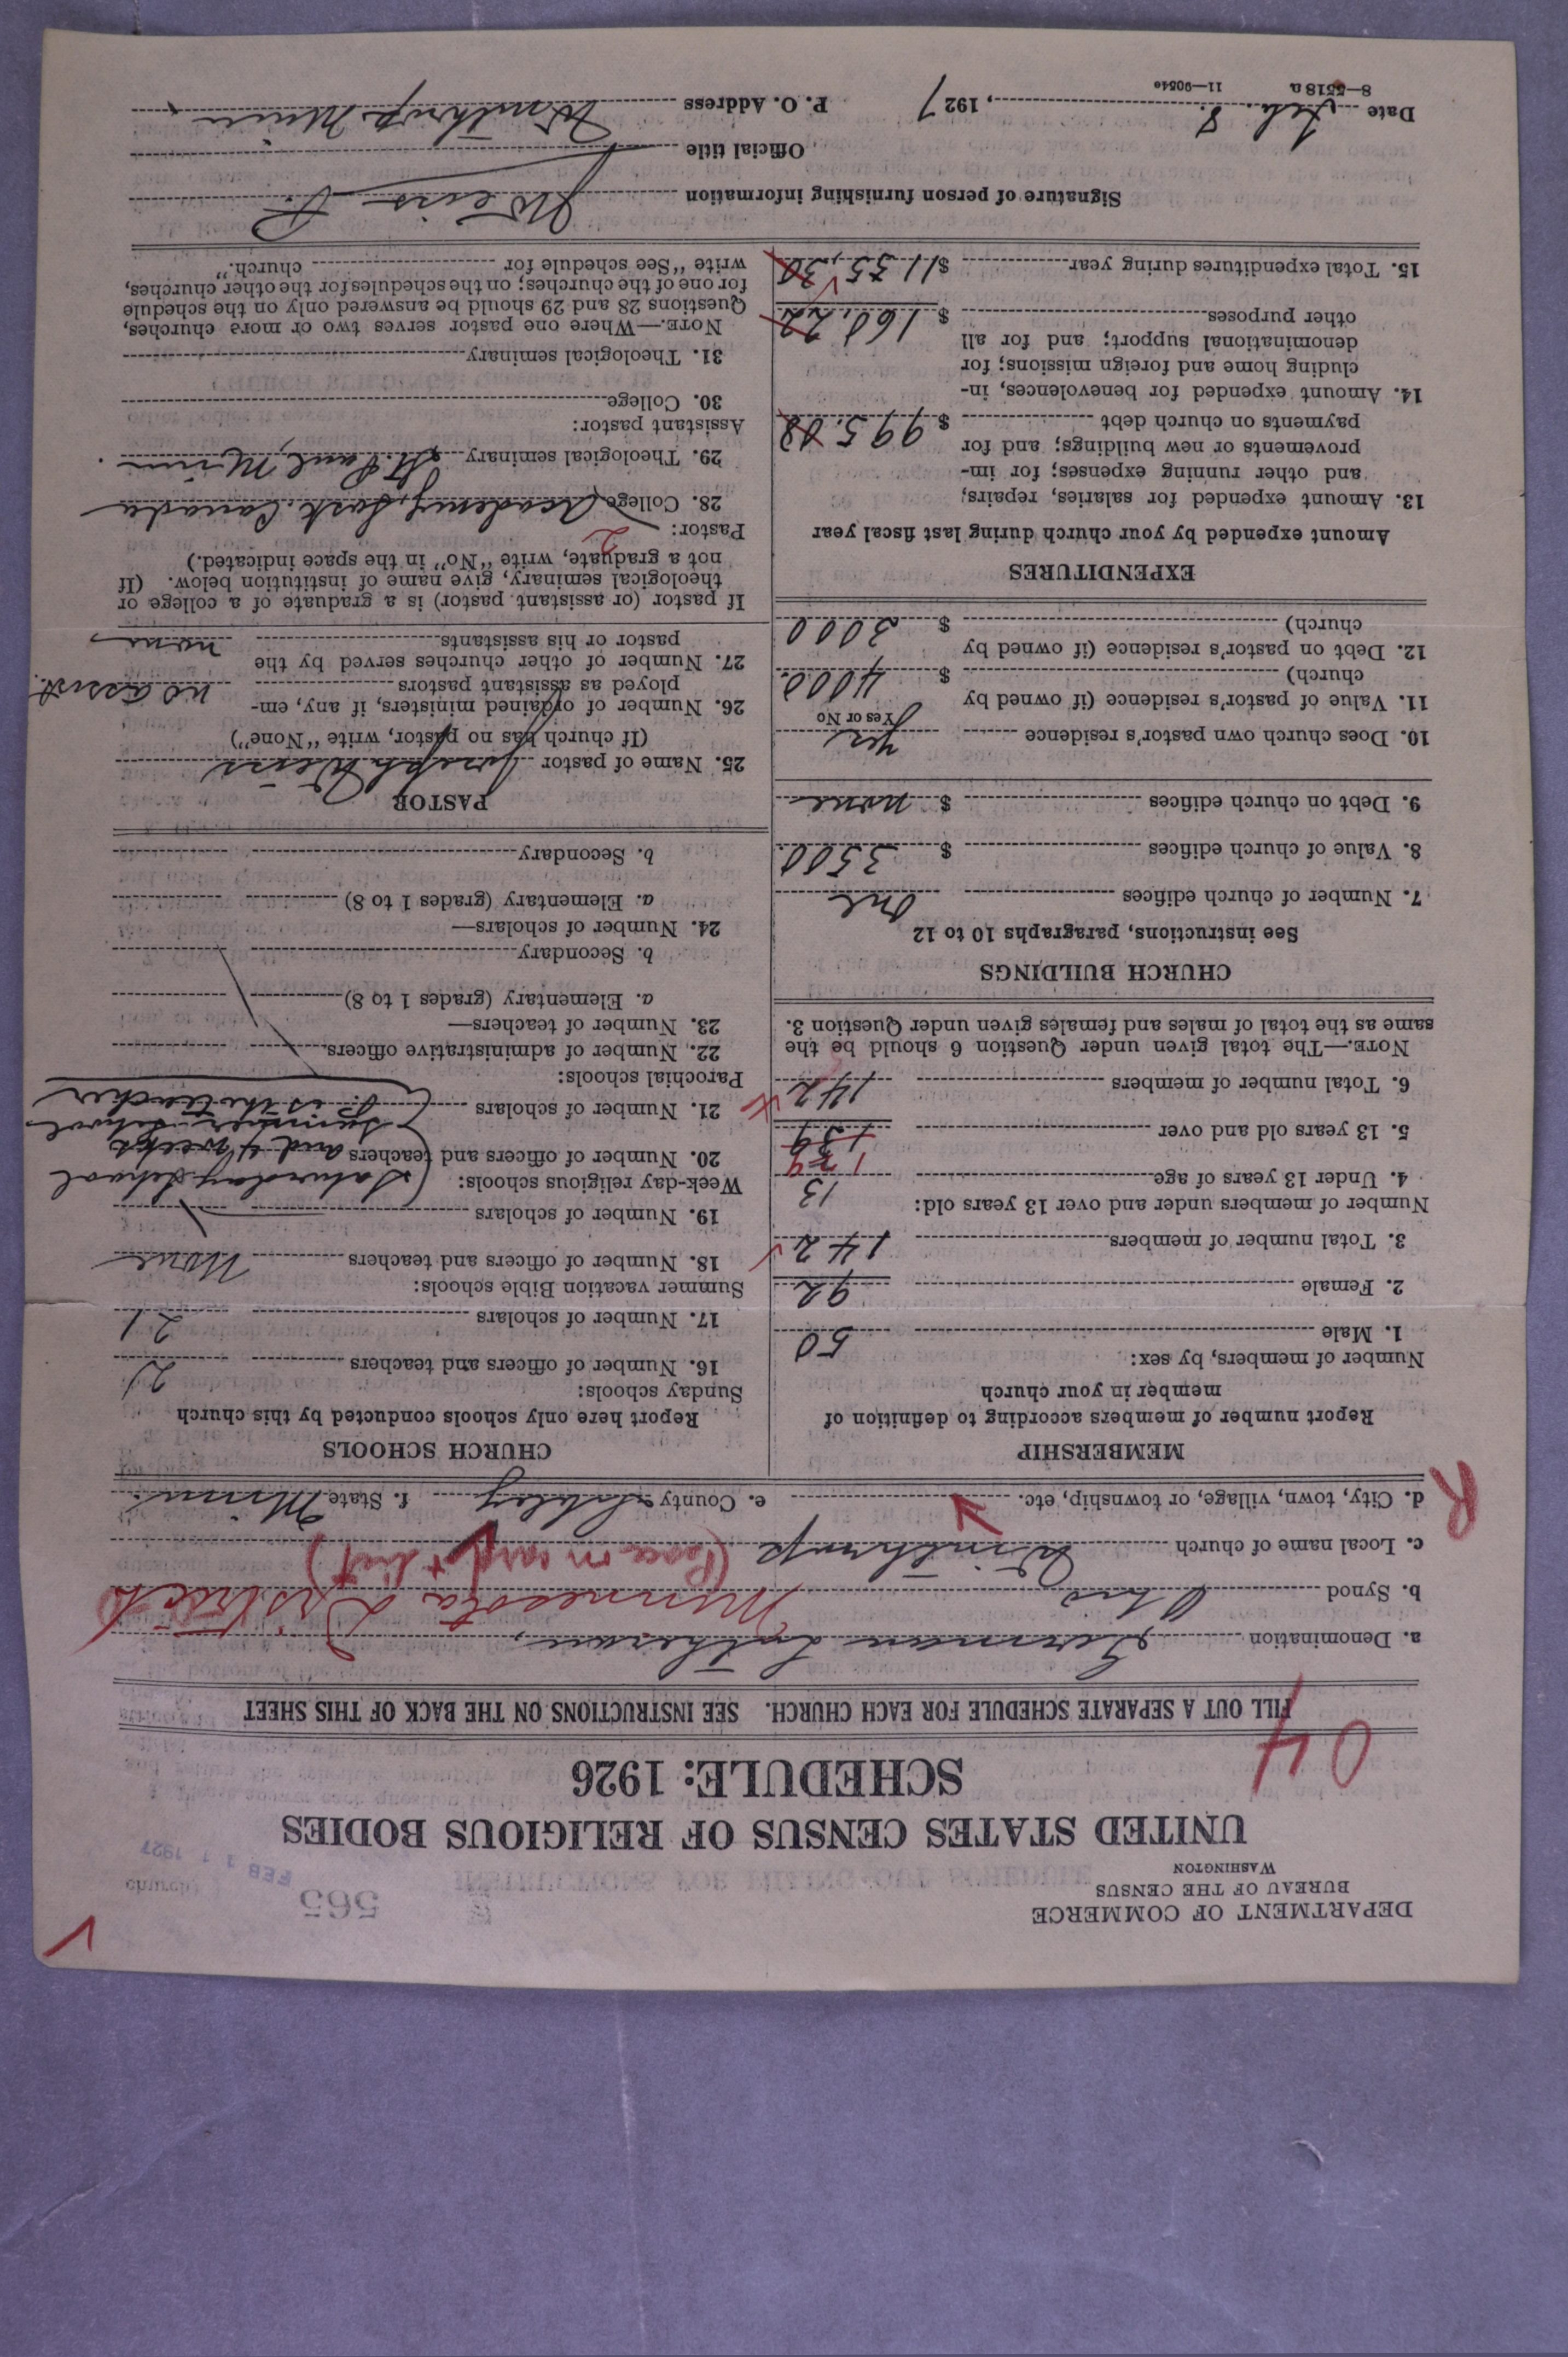 DEPARTMENT OF COMMERCE
BUREAU OF THE CENSUS
WASHINGTON
565
FEB 11 1927
UNITED STATES CENSUS OF RELIGIOUS BODIES
SCHEDULE: 1926
04
FILL OUT A SEPARATE SCHEDULE FOR EACH CHURCH. SEE INSTRUCTIONS ON THE BACK OF THIS SHEET
a. Denomination German Lutheran,
b. Synod Ohio Minnesota District
c. Local name of church Winthrop
R
d. City, town, village, or township, etc. e. County Sibley f. State Minn.
MEMBERSHIP
Report number of members according to definition of
member in your church
Number of members, by sex:
1. Male 50
2. Female 92
3. Total number of members 142
Number of members under and over 13 years old:
4. Under 13 years of age 13
5. 13 years old and over 139
6. Total number of members 142
NOTE.—The total given under Question 6 should be the
same as the total of males and females given under Question 3.
CHURCH BUILDINGS
See instructions, paragraphs 10 to 12
7. Number of church edifices One
8. Value of church edifices $ 3500
9. Debt on church edifices $ none
10. Does church own pastor's residence yes
Yes or No
11. Value of pastor's residence (if owned by
church) $ 4000
12. Debt on pastor's residence (if owned by
church) $ 3000
EXPENDITURES
Amount expended by your church during last fiscal year
13. Amount expended for salaries, repairs,
and other running expenses; for im-
provements or new buildings; and for
payments on church debt $ 995.08
14. Amount expended for benevolences, in-
cluding home and foreign missions; for
denominational support; and for all
other purposes $ 160.22
15. Total expenditures during year $ 1155.30
CHURCH SCHOOLS
Report here only schools conducted by this church
Sunday schools:
16. Number of officers and teachers 2
17. Number of scholars 21
Summer vacation Bible schools:
18. Number of officers and teachers None
19. Number of scholars
Week-day religious schools: (Saturday School
20. Number of officers and teachers and 4 weeks
summer school
21. Number of scholars P. is the teacher
Parochial schools:
22. Number of administrative officers
23. Number of teachers—
a. Elementary (grades 1 to 8)
b. Secondary
24. Number of scholars—
a. Elementary (grades 1 to 8)
b. Secondary
PASTOR
25. Name of pastor Joseph Weiss
(If church has no pastor, write "None")
26. Number of ordained ministers, if any, em-
ployed as assistant pastors no assist.
27. Number of other churches served by the
pastor or his assistants none
If pastor (or assistant pastor) is a graduate of a college or
theological seminary, give name of institution below. (If
not a graduate, write "No" in the space indicated.)
Pastor: 2
28. College (Academy, Sask. Canada
29. Theological seminary St. Paul, Minn
Assistant pastor:
30. College
31. Theological seminary
NOTE.—Where one pastor serves two or more churches,
Questions 28 and 29 should be answered only on the schedule
for one of the churches; on the schedules for the other churches,
write "See schedule for church."
Signature of person furnishing information J Weiss P.
Official title
Date Feb. 8., 1927 P. O. Address Winthrop Minn
8—5518a 11—9054a